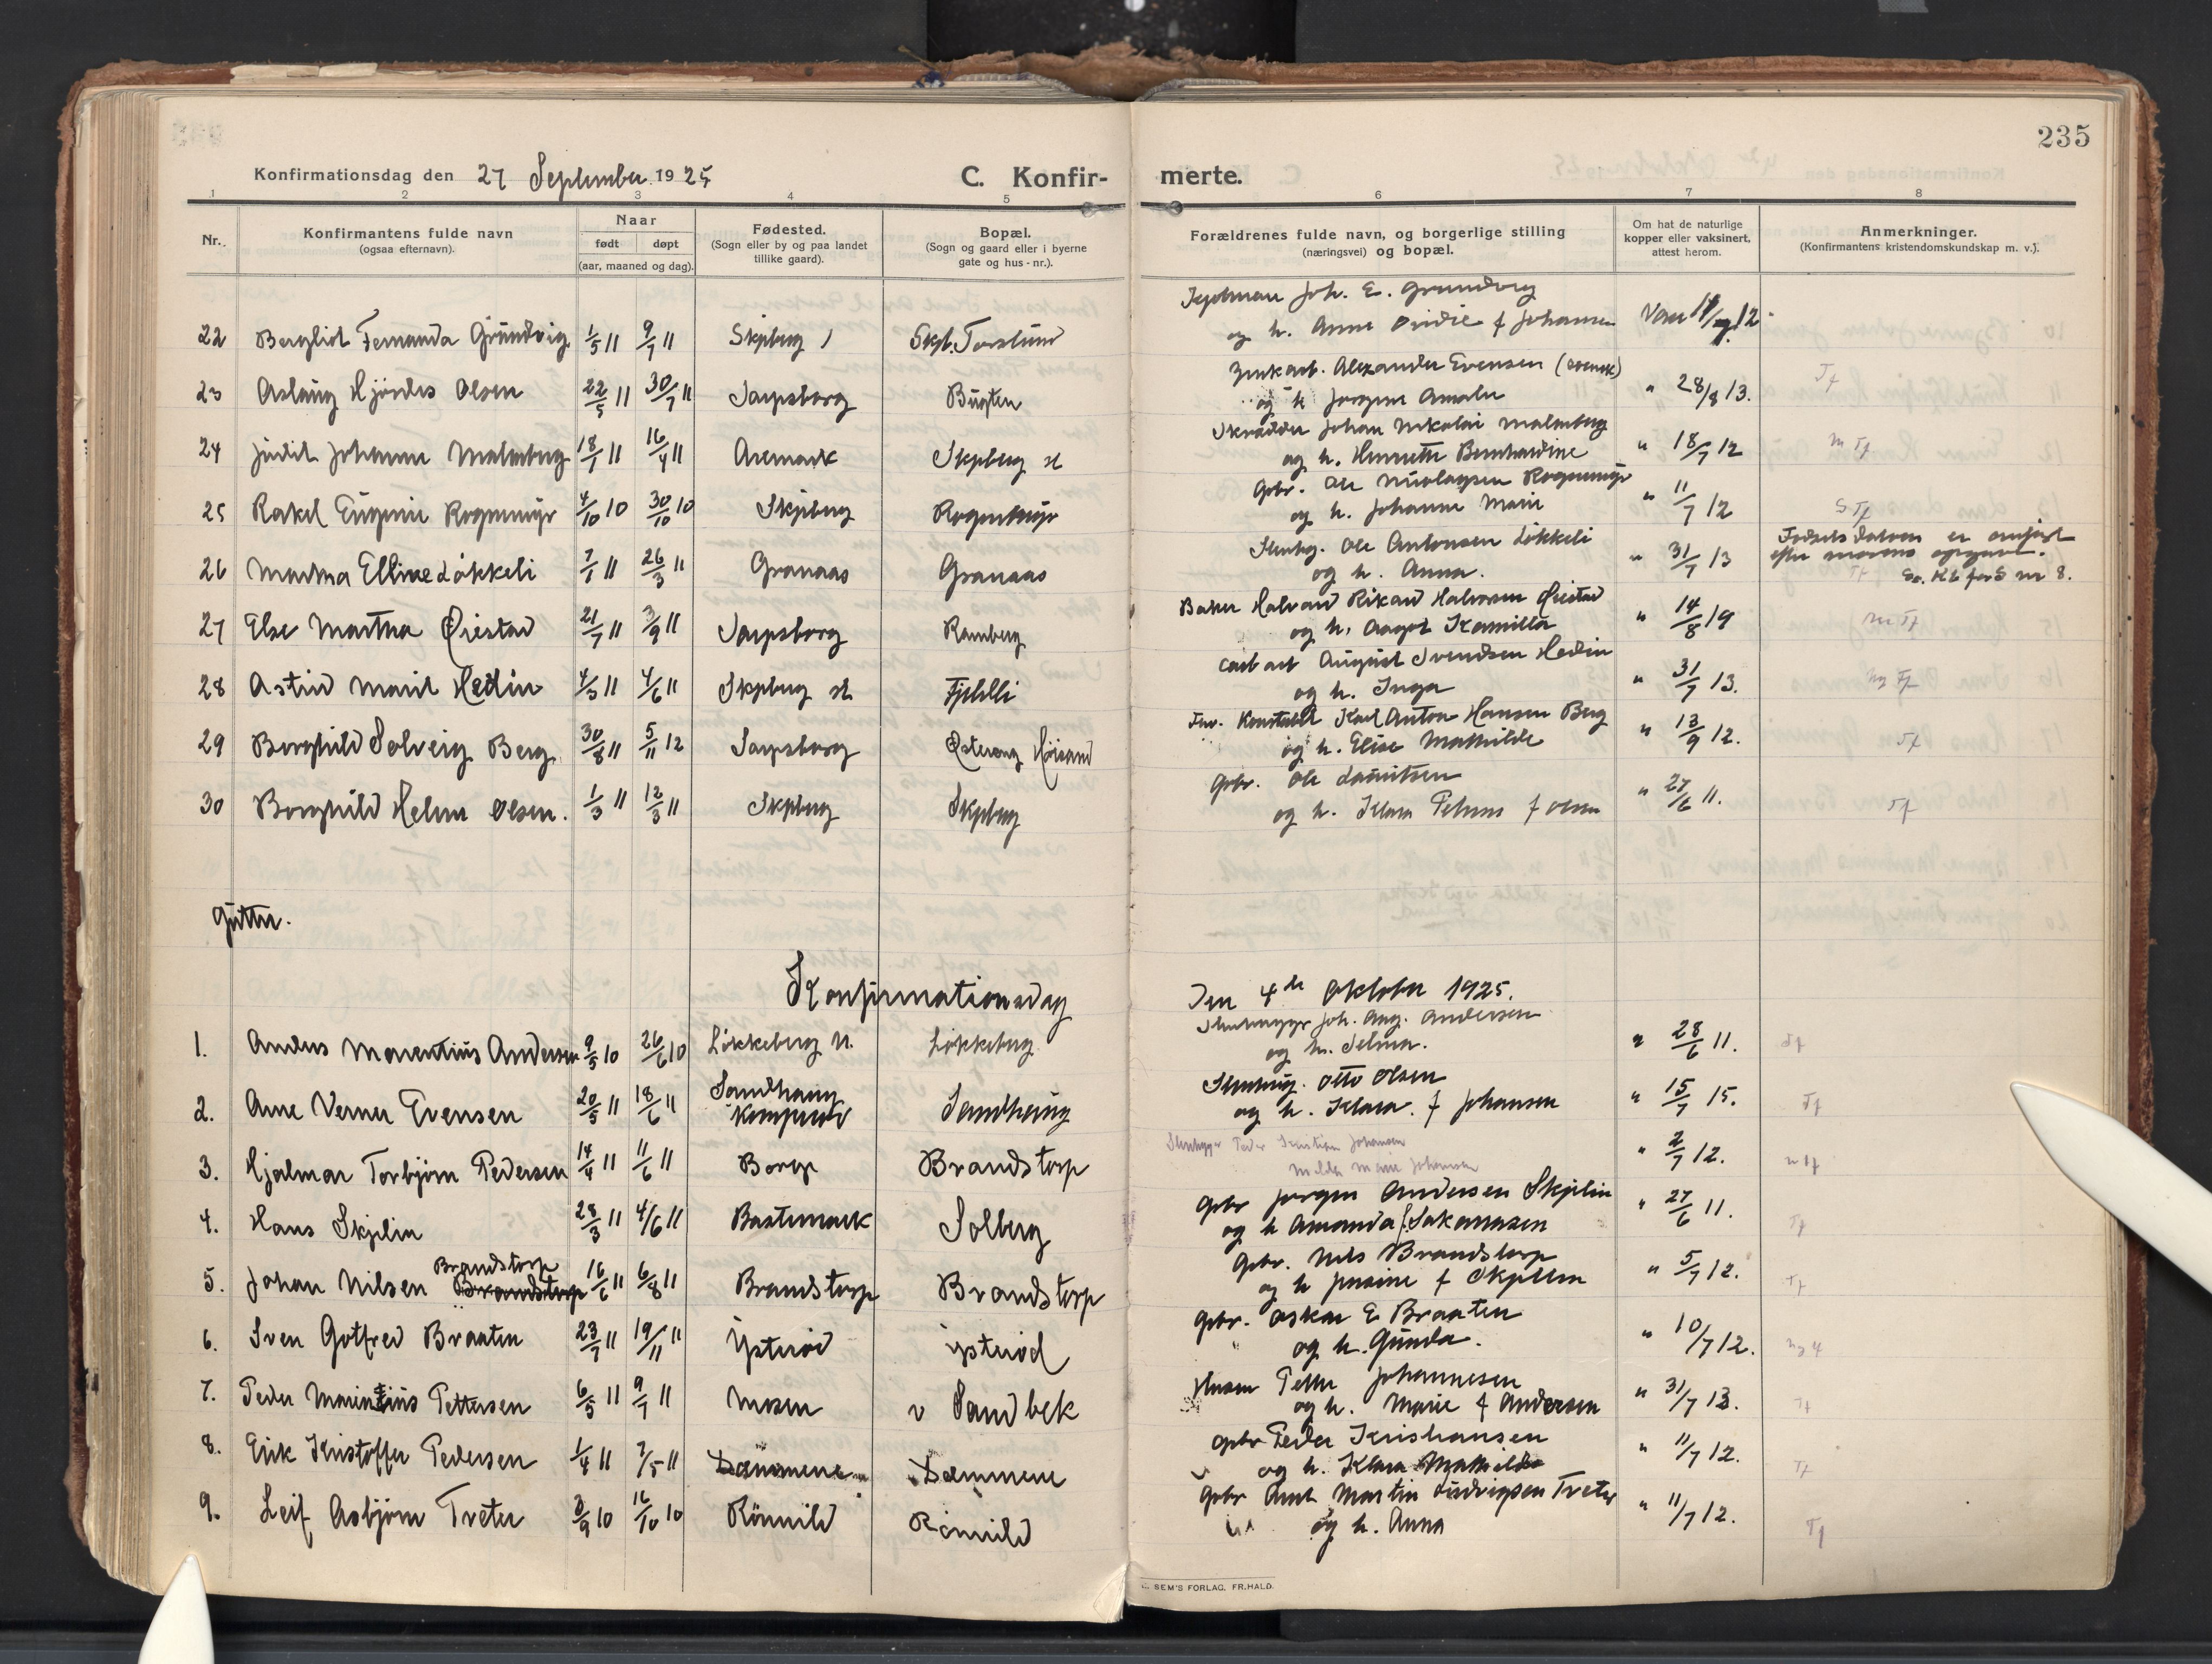 235
Konfirmationsdag den 27 September 1925
C. Konfir-merte.
1 2 3 4 5 6 7 8
Nr.
Konfirmantens fulde navn
(ogsaa efternavn).
Naar
født døpt
(aar, maaned og dag).
Fødested.
(Sogn eller by og paa landet
tillike gaard).
Bopæl.
(Sogn og gaard eller i byerne
gate og hus-nr.).
Forældrenes fulde navn, og borgerlige stilling
(næringsvei) og bopæl.
Om hat de naturlige
kopper eller vaksinert,
attest herom.
Anmerkninger.
(Konfirmantens kristendomskundskap m. v.).
Joh. E. Grundvig
22 Bergliot Fernanda Gründvig 1/5 11 9/7 11 Skjeberg Skjb. Torslund og h. Anne f Johansen
Alexander Evensen (svensk)
23 Aslaug Hjørdis Olsen 22/5 11 30/7 11 Sarpsborg Bugten og h Jørgine Amalie " 28/8 13. Tf
Skrædder Johan Nikolai Malmberg
24 Judit Johanne Malmberg 18/1 11 16/4 11 Aremark Skjeberg st og h. Henriette Bernhardine " 18/7 12 m Tf
Gbr. Ole Nicolaysen Rognmyr
25 Rakel Eugenie Rognmyr 4/10 10 30/10 10 Skjeberg Rognmyr og h. Johanne Marie " 11/7 12 S Tf
Stenhg. Ole Antonsen Løkkeli
26 Martha Elline Løkkeli 7/1 11 26/3 11 Granaas Granaas og h. Anna. " 31/7 13
Fødselsdatoen er anført
efter morens opgave.
Se. Kb for S nr 8.
Baker Halvard Rikard Halvorsen Øiestad
27 Else Martha Øiestad 21/7 11 3/9 11 Sarpsborg Ramberg og h. Aagot Kamilla " 14/8 19 m Tf
arb August Svendsen Hedin
28 Astrid Marit Hedin 4/3 11 4/6 11 Skjeberg st Fjeldli og h. Inga " 31/7 13. Ng Tf
Konstabel Karl Anton Hansen Berg
29 Borghild Solveig Berg 30/8 11 5/11 12 Sarpsborg Østeveng Høisand og h. Elise Mathilde " 13/9 12. Tf
Gbr. Ole Lauritsen
30 Borghild Helene Olsen. 1/3 11 12/3 11 Skjeberg Skjeberg og h. Klara Petrine f Olsen " 27/6 11. Tf
Gutter.
Konfirmationsdag Den 4de Oktober 1925.
Stenhugger Joh. Aug. Andersen
1. Anders Marentius Andersen 9/5 10 26/6 10 Løkkeberg N. Løkkeberg og h. Selma. " 28/6 11. Tf
Stenhug. Otto Olsen
2. Arne Verner Evensen 20/5 11 18/6 11 Sandhaug
Kompurød Sandhaug og h. Klara. f Johansen " 15/7 15. Tf
Stenhugger Peder Kristian Johansen
3. Hjalmar Torbjørn Pedersen 14/4 11 11/6 11 Borge Brandstorp Milda Marie Johansen " 2/7 12. m Tf
Gbr Jørgen Andersen Skjelin
4. Hans Skjelin 28/3 11 4/6 11 Bastumark Solberg og h Amanda f. Sakariasen " 27/6 11. Tf
Gbr. Nils Brandstorp
5. Johan Nilsen Brandstorp Brandstorp 16/6 11 6/8 11 Brandstorp Brandstorp og h Josine f Skjeltin " 5/7 12. Tf
Gbr. Oskar E Braaten
6. Sven Gotfred Braaten 23/7 11 19/11 11 Ysterød Ysterød og h. Gunda. " 10/7 12.
Petter Johannesen
7. Peder Marintius Pettersen 6/5 11 9/7 11 Mosen v Sandbek og h. Marie f Andersen " 31/7 13. Tf
Gbr Peder Kristiansen
8. Erik Kristoffer Pedersen 1/4 11 7/5 11 Dæmmene Dæmmene og h. Klara Mathilde " 11/7 12. Tf
Gbr Anth Martin Ludvigsen Treter
9. Leif Asbjørn Treter 3/9 10 16/10 10 Rømild Rømild og h. Anna " 11/7 12. Tf
SEM'S FORLAG, FR.HALD.